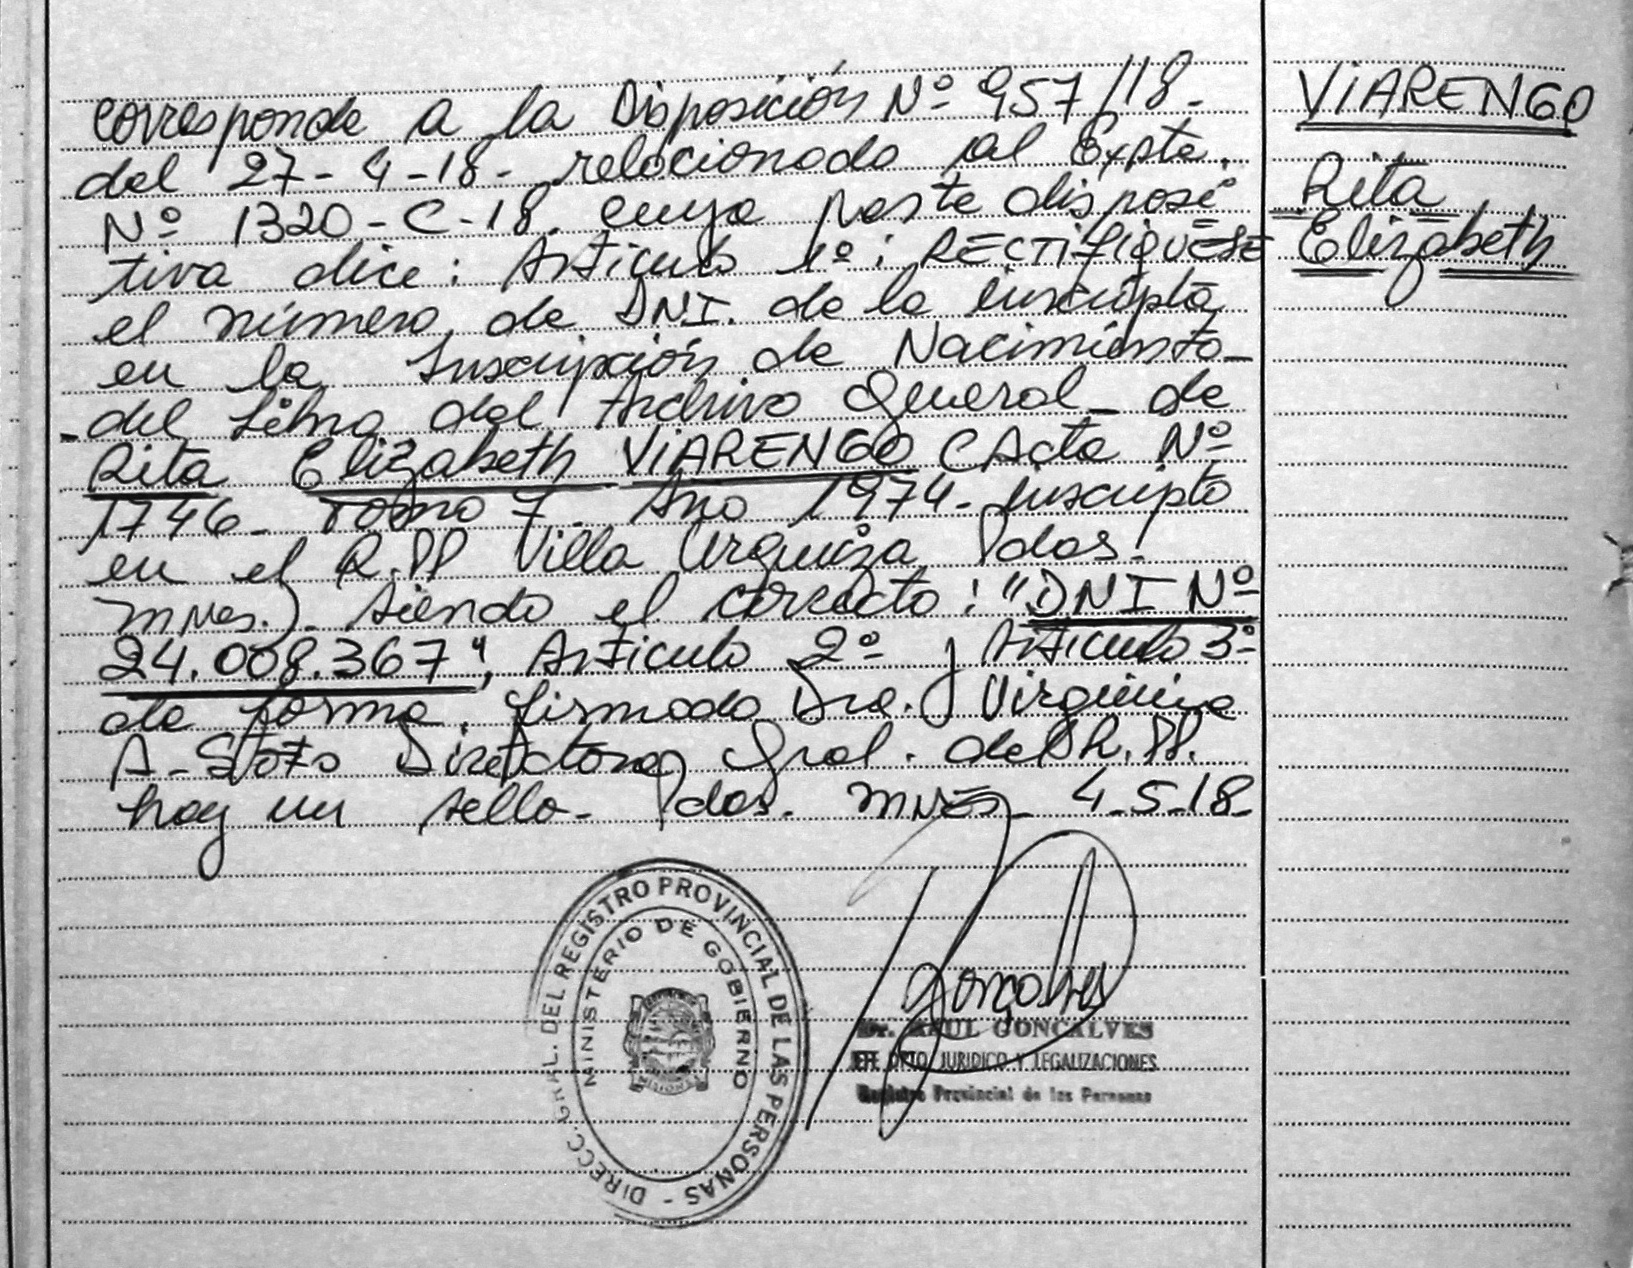 corresponde a la Disposición Nº 957/18-
del 27-4-18- relacionado al Expte.
Nº 1320-C-18. cuya parte disposi
tiva dice: Artículo 1º: RECTIFIQUESE
el número de DNI. de la inscripta
en la Inscripción de Nacimiento-
-del Libro del Archivo General- de
Rita Elizabeth VIARENGO (Acta Nº
1746- Tomo 7- Año 1974- inscripto
en el R.PP Villa Urquiza Pdas.
mnes.). siendo el correcto: "DNI Nº
24.008.367"; Artículo 2º y Artículo 3º
de forma. firmado Dra. Virginia
A- Directora Gral. del R.PP.
hay un sello- Pdas. mnes- 4-5-18-
VIARENGO
Rita
Elizabeth
DIRECC. GRAL. DEL REGISTRO PROVINCIAL DE LAS PERSONAS -
MINISTERIO DE GOBIERNO
MISIONES
Gonçalves
Dr. RAUL GONCALVES
DPTO JURIDICO Y LEGALIZACIONES
Registro Provincial de las Personas